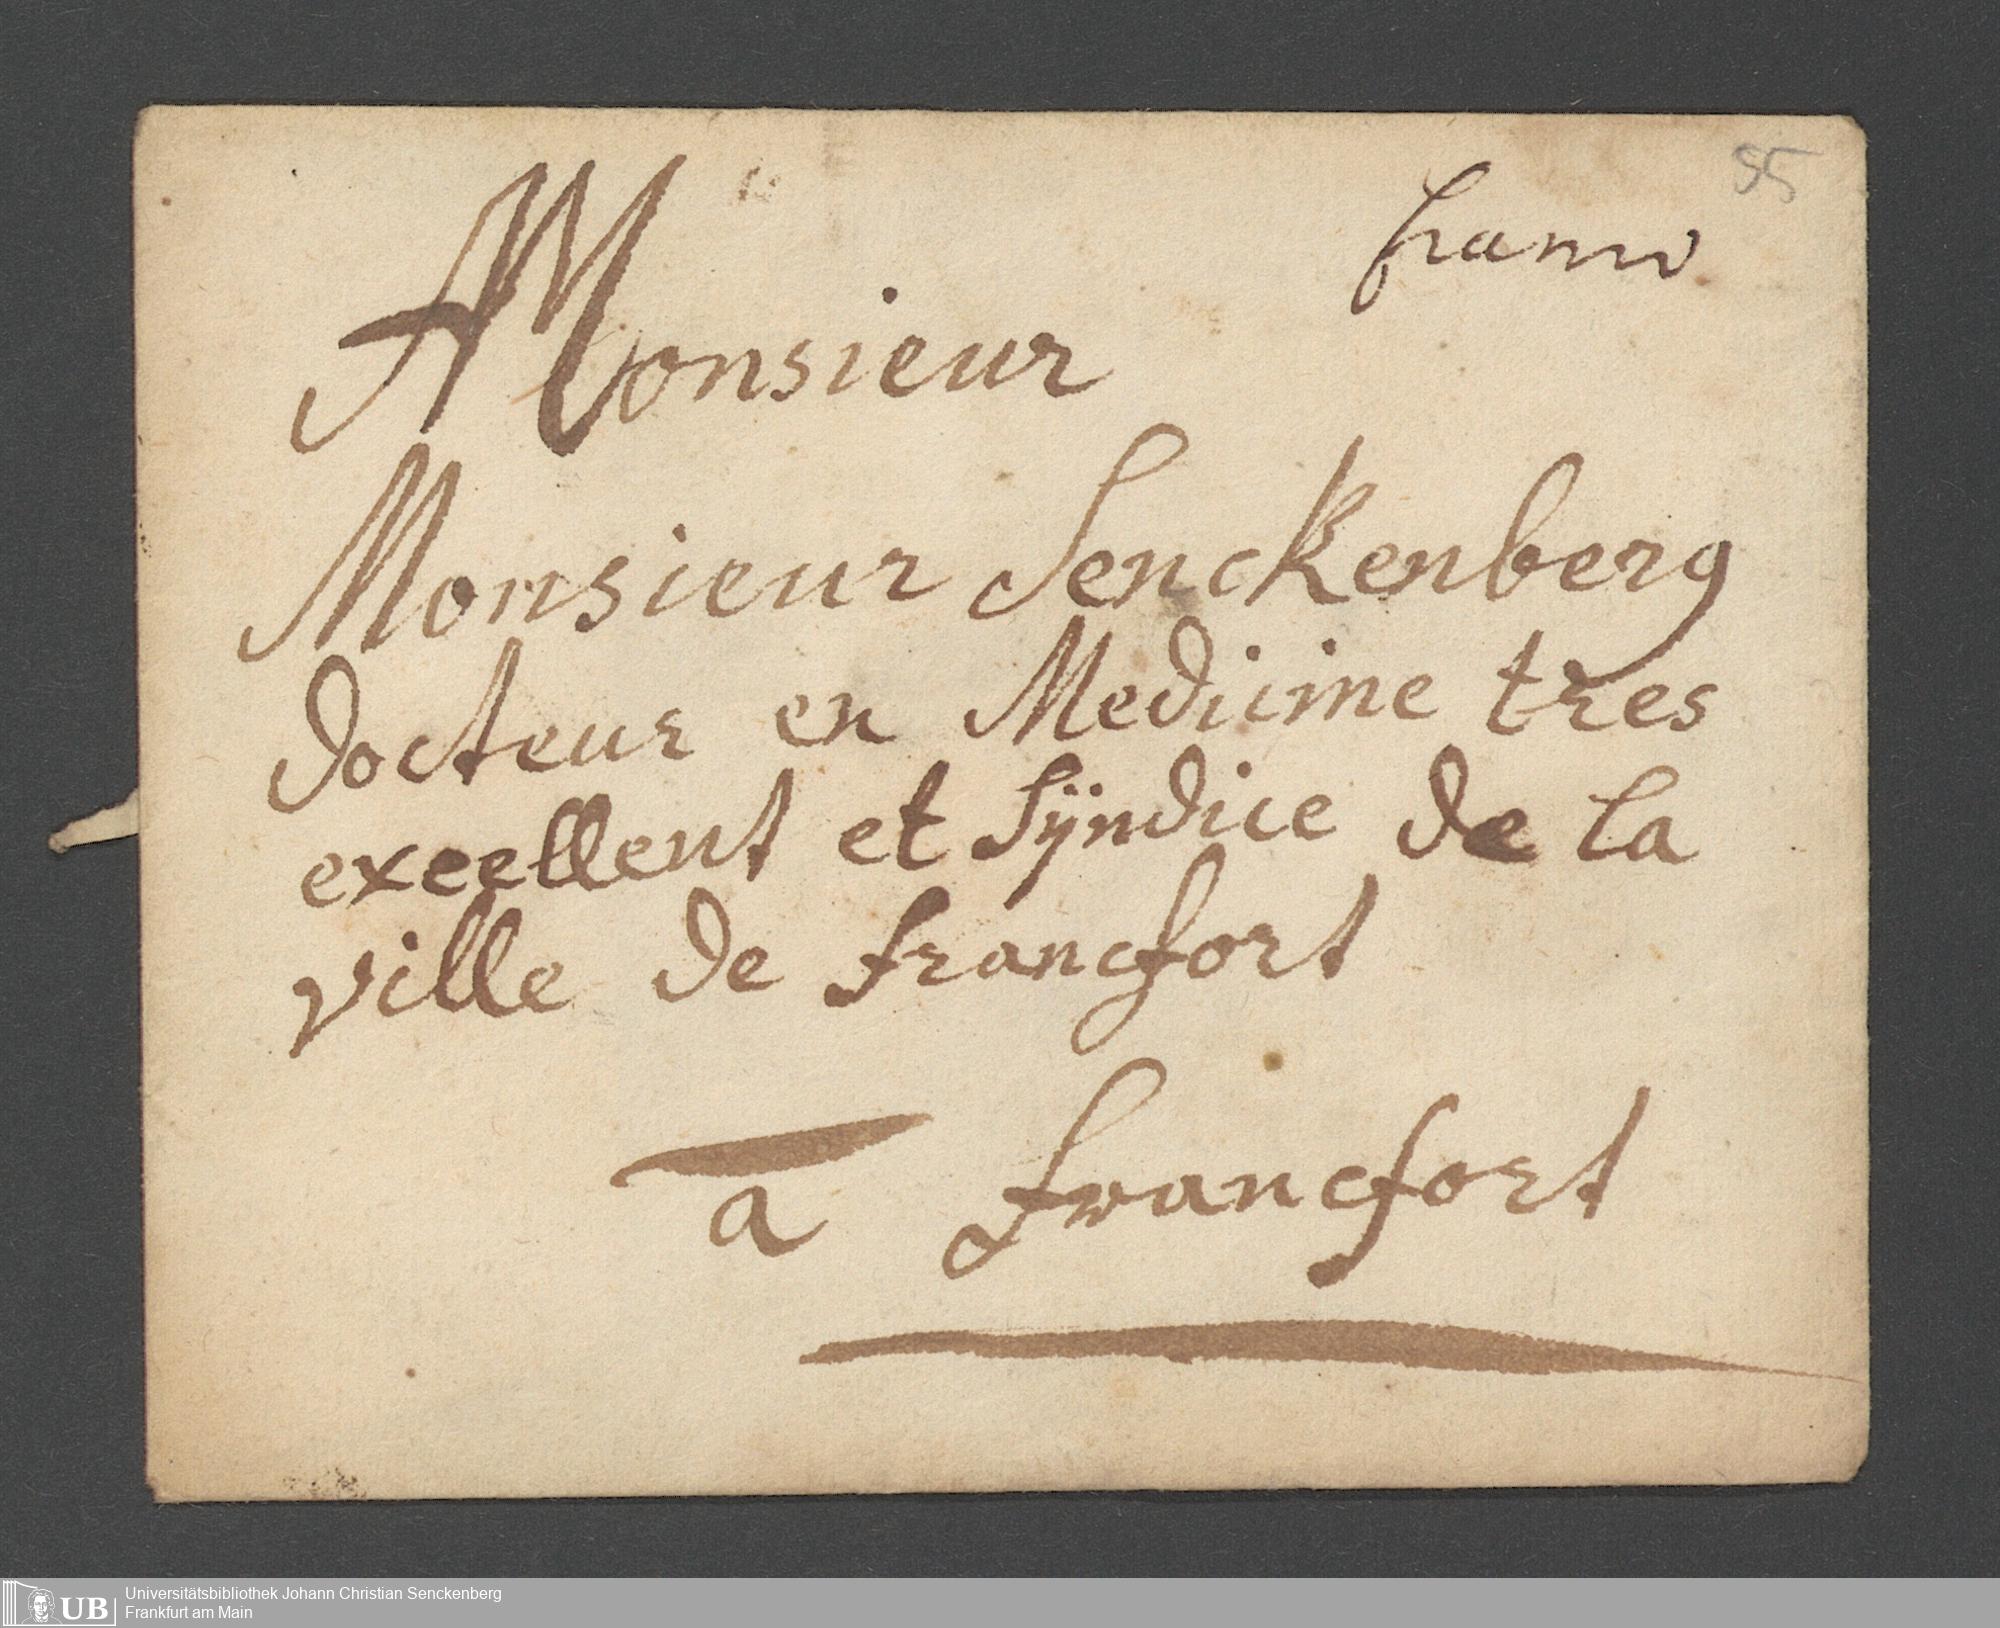 55
franco
Monsieur
Monsieur Senckenberg
docteur en Medicine tres
exeellent et Sÿndice de la
ville de francfort
a francfort
UB Universitätsbibliothek Johann Christian Senckenberg
Frankfurt am Main